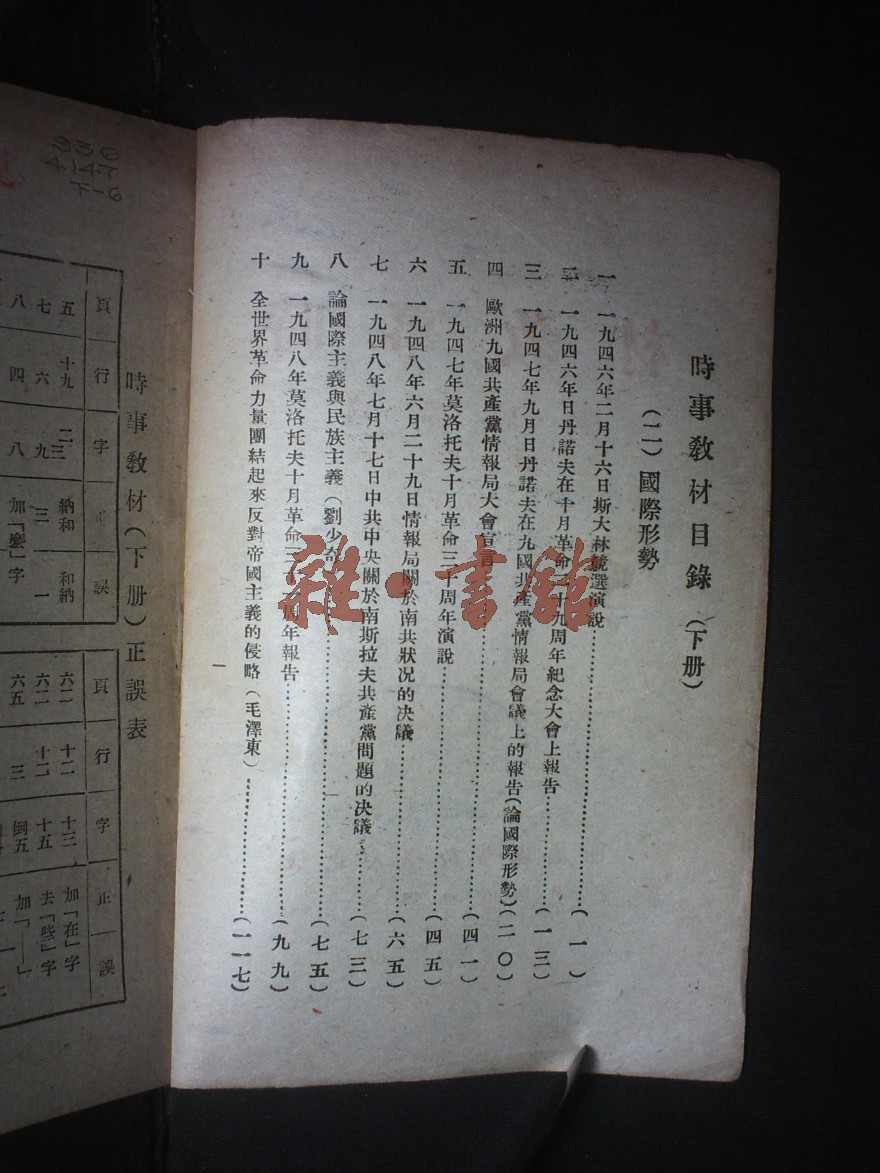 時事教材目錄(下册)
(二)國際形勢
一 一九四六年二月十六日斯大林競選演說(一)
二 一九四六年日丹諾夫在十月革命二十九周年紀念大會上報告(一三)
三 一九四七年九月日丹諾夫在九國共產黨情報局會議上的報告(論國際形勢)(二〇)
四 歐洲九國共產黨情報局大會宣言(四一)
五 一九四七年莫洛托夫十月革命三十周年演說(四五)
六 一九四八年六月二十九日情報局關於南共狀況的决議(六五)
七 一九四八年七月十七日中共中央關於南斯拉夫共產黨問題的决議(七三)
八 論國際主義與民族主義(劉少奇)(七五)
九 一九四八年莫洛托夫十月革命三十一周年報告(九九)
十 全世界革命力量團結起來反對帝國主義的侵略(毛澤東)(一一七)
一
雜·書館
936
4147
下-6
時事教材(下册)正誤表
頁 行 字 正 誤
五 十九 二三 納和 和納
七 六 九 三 一
八 四 八 加「麽」字
頁 行 字 正 誤
六二 十二 十三 加「在」字
六二 十二 十五 去「些」字
六五 三 倒五 加「——」